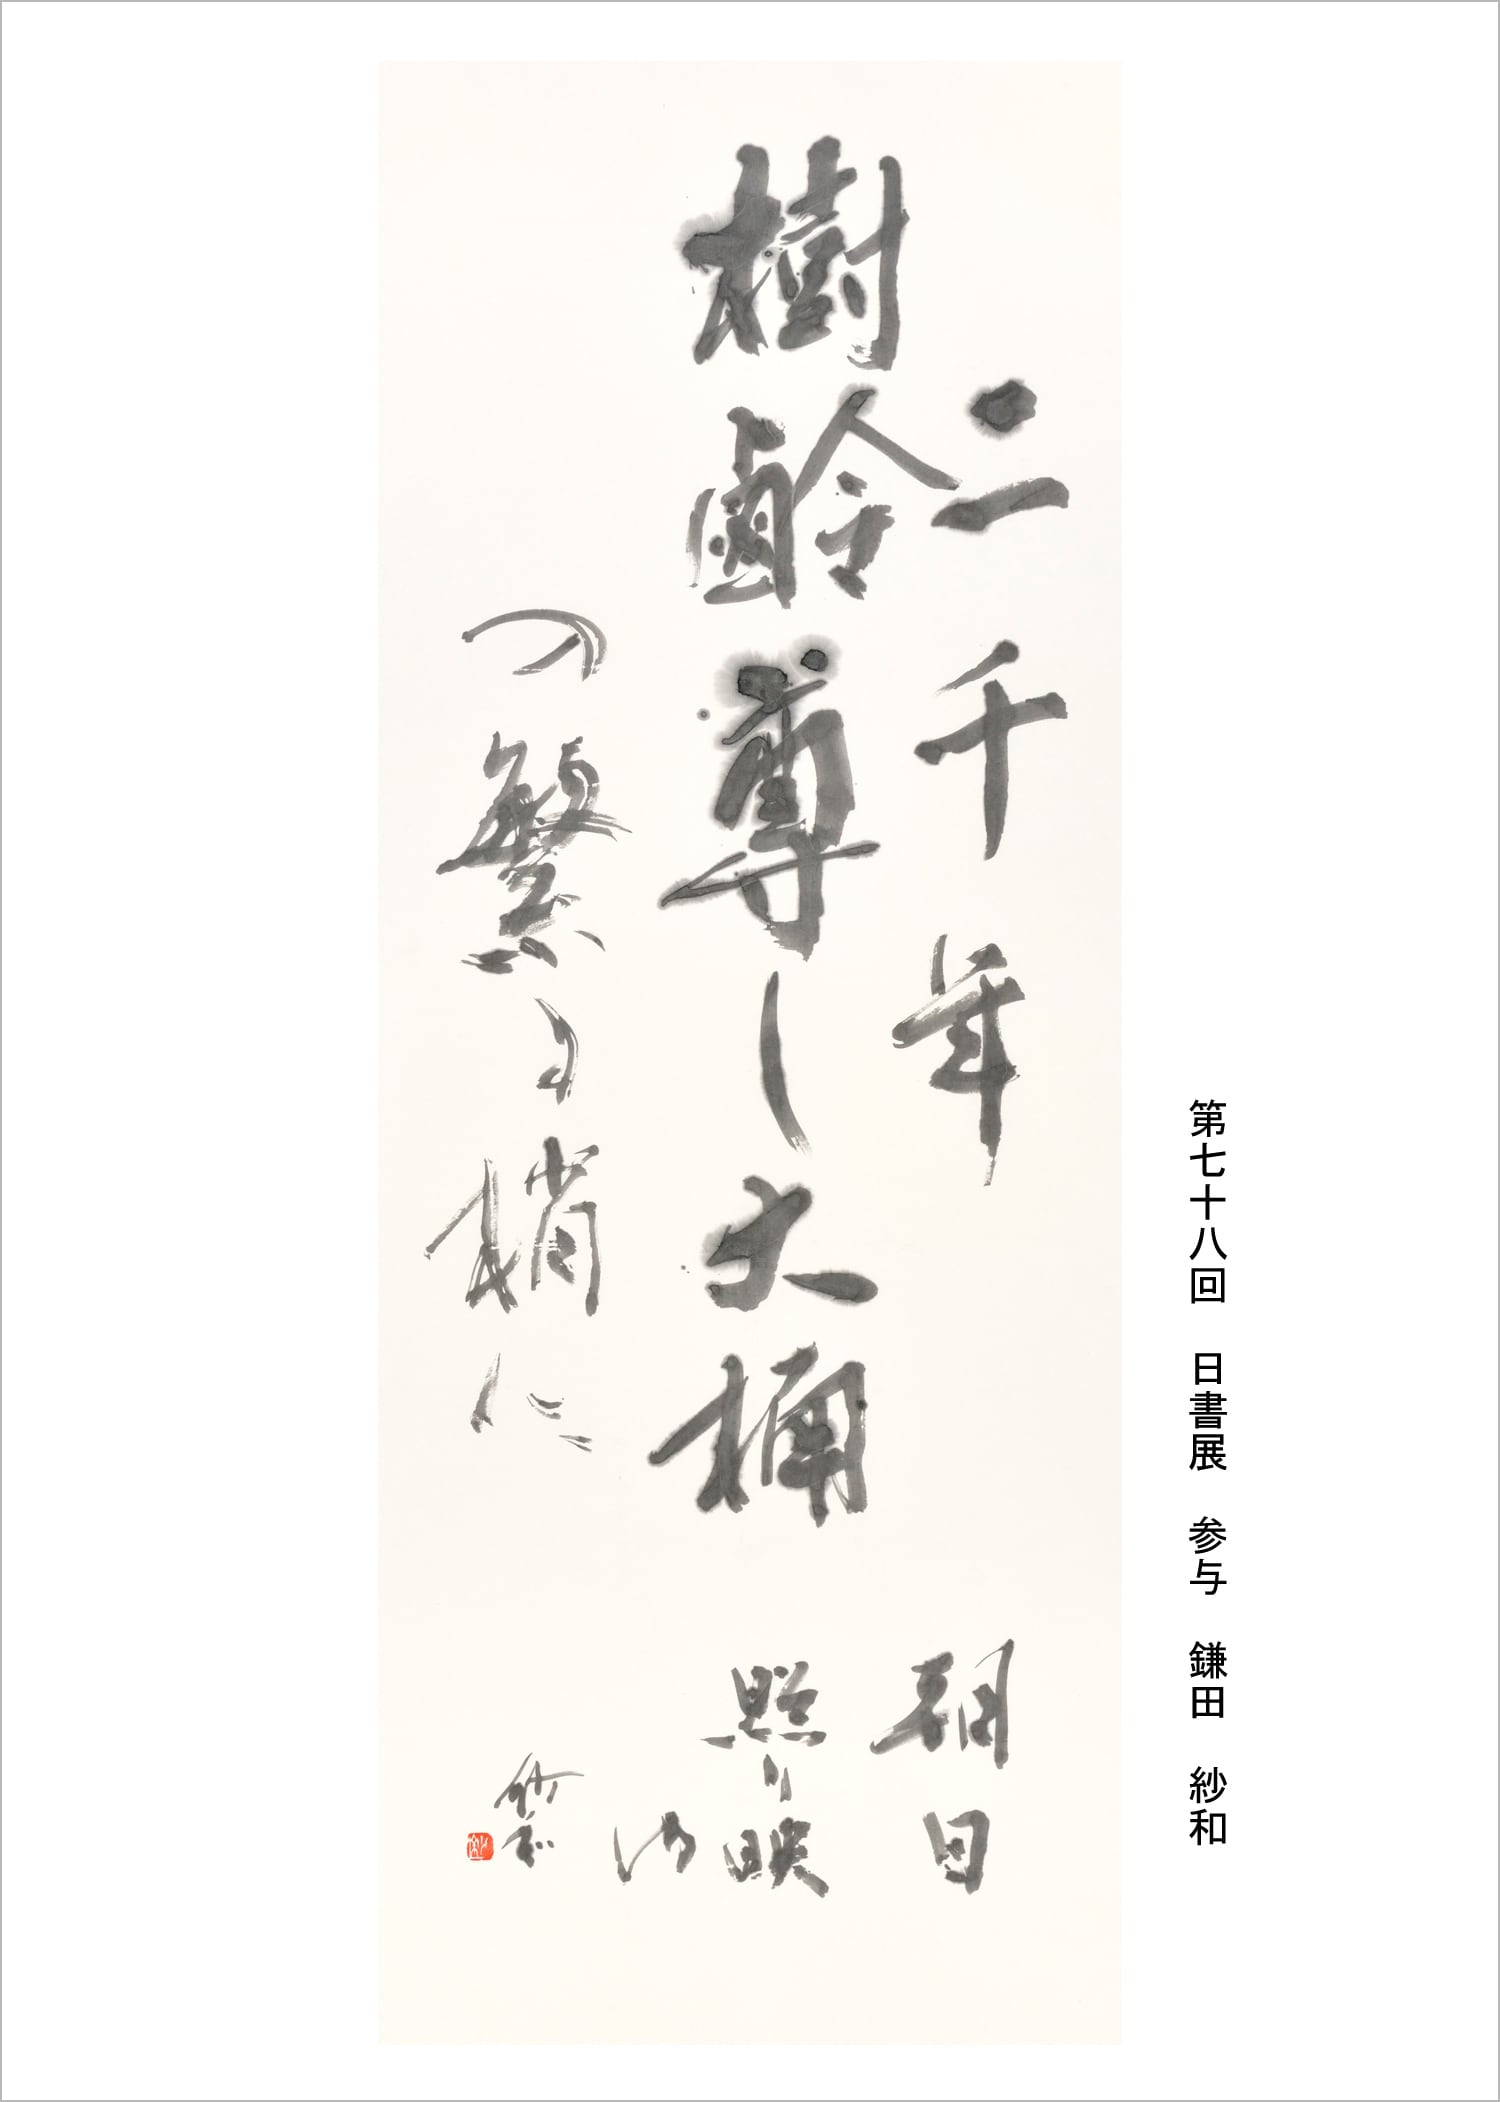 第七十八回　日書展　参与　鎌田　紗和
二千年
樹齢尊し大楠
の繁る梢に
朝日
照り映
ゆ
紗和